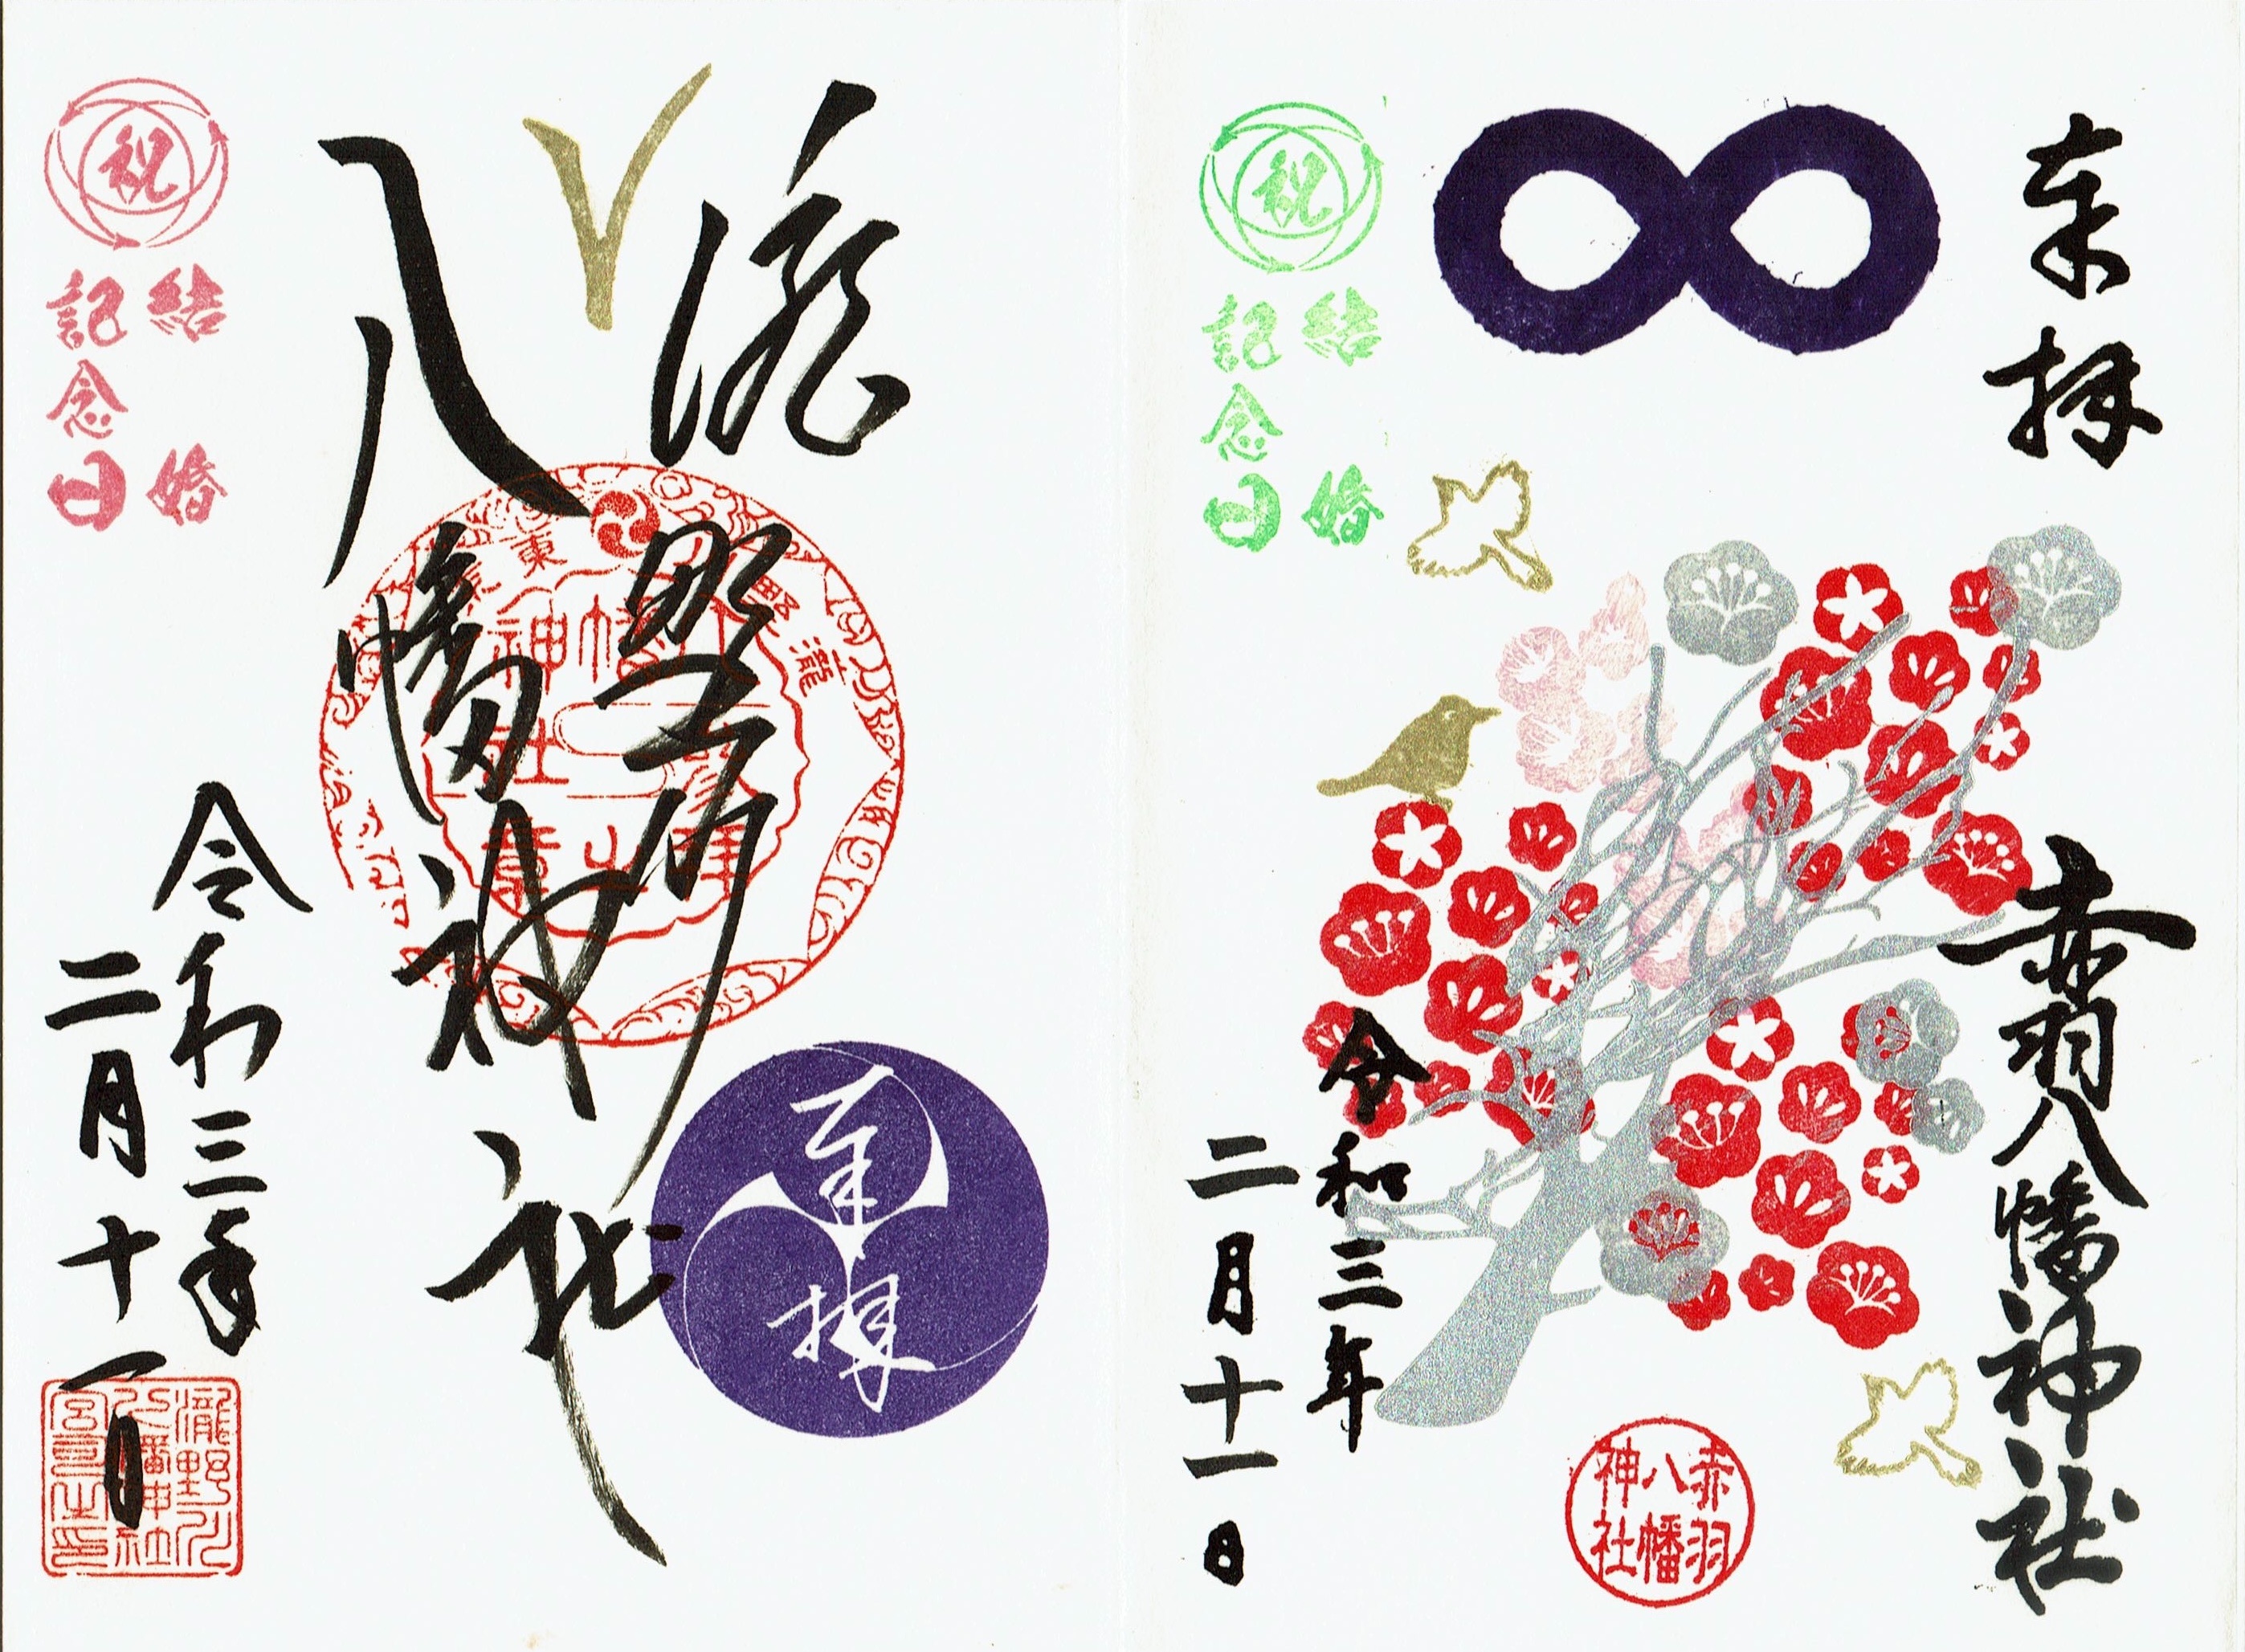 奉拝
赤羽八幡神社
赤羽
八幡
神社
令和三年
二月十一日
祝
結婚
記念日
瀧
野川
八
幡神社
奉拝
瀧野川
八幡神社
宮司之印
令和三年
二月十一日
祝
結婚
記念日